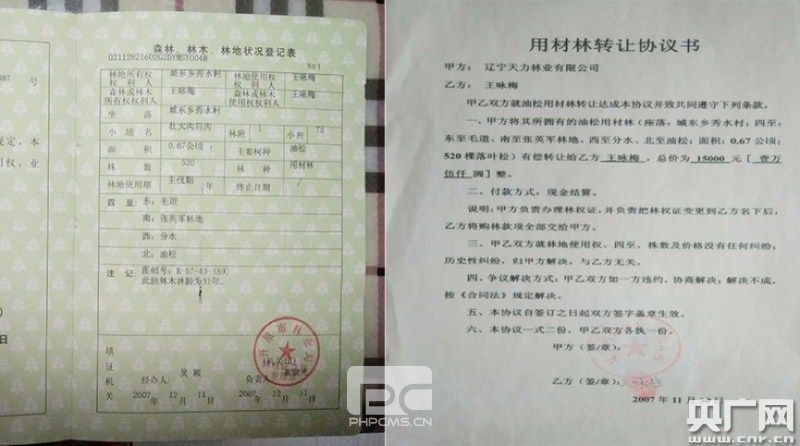 森林、林木、林地状况登记表
0211282160202DYMSY0048
№1
林地所有权权利人 城东乡秀水村 林地使用权权利人 王咏梅
森林或林木所有权权利人 王咏梅 森林或林木使用权权利人 王咏梅
坐落 城东乡秀水村
小地名 壮大沟后沟 林班 1 小班 75
面积 0.67公顷 主要树种 油松
株数 520 林种 用材林
林地使用期 主伐期 年 终止日期
四至 东:毛道
南:张英军林地
西:分水
北:油松
注记 图幅号:K-57-45-(69)
此片林木林龄为31年。
填证机关
经办人: 吴颖 负责人:
2007年12月11日 2007年12月11日
87 号
规定,本
权、业
日
用材林转让协议书
甲方: 辽宁天力林业有限公司
乙方: 王咏梅
甲乙双方就油松用材林转让达成本协议并致共同遵守下列条款。
一、甲方将其所拥有的油松用材林(座落:城东乡秀水村;四至:
东至毛道、南至张英军林地、西至分水、北至油松;面积:0.67 公顷;
520 棵落叶松)有偿转让给乙方 王咏梅,总价为 15000 元[ 壹万
伍仟 圆]整。
二、付款方式:现金结算。
说明:甲方负责办理林权证,并负责把林权证变更到乙方名下后,
乙方将购林款项全部交给甲方。
三、甲乙双方就林地使用权、四至、株数及价格没有任何纠纷;
历史性纠纷,归甲方解决,与乙方无关。
四、争议解决方式:甲乙双方如一方违约,协商解决;解决不成,
按《合同法》规定解决。
五、本协议自签订之日起双方签字盖章生效。
六、本协议一式二份,甲乙双方各执一份。
甲方(签/章):
乙方(签/章):
2007 年 11 月 日
PHPCMS.CN
央广网
www.cnr.cn